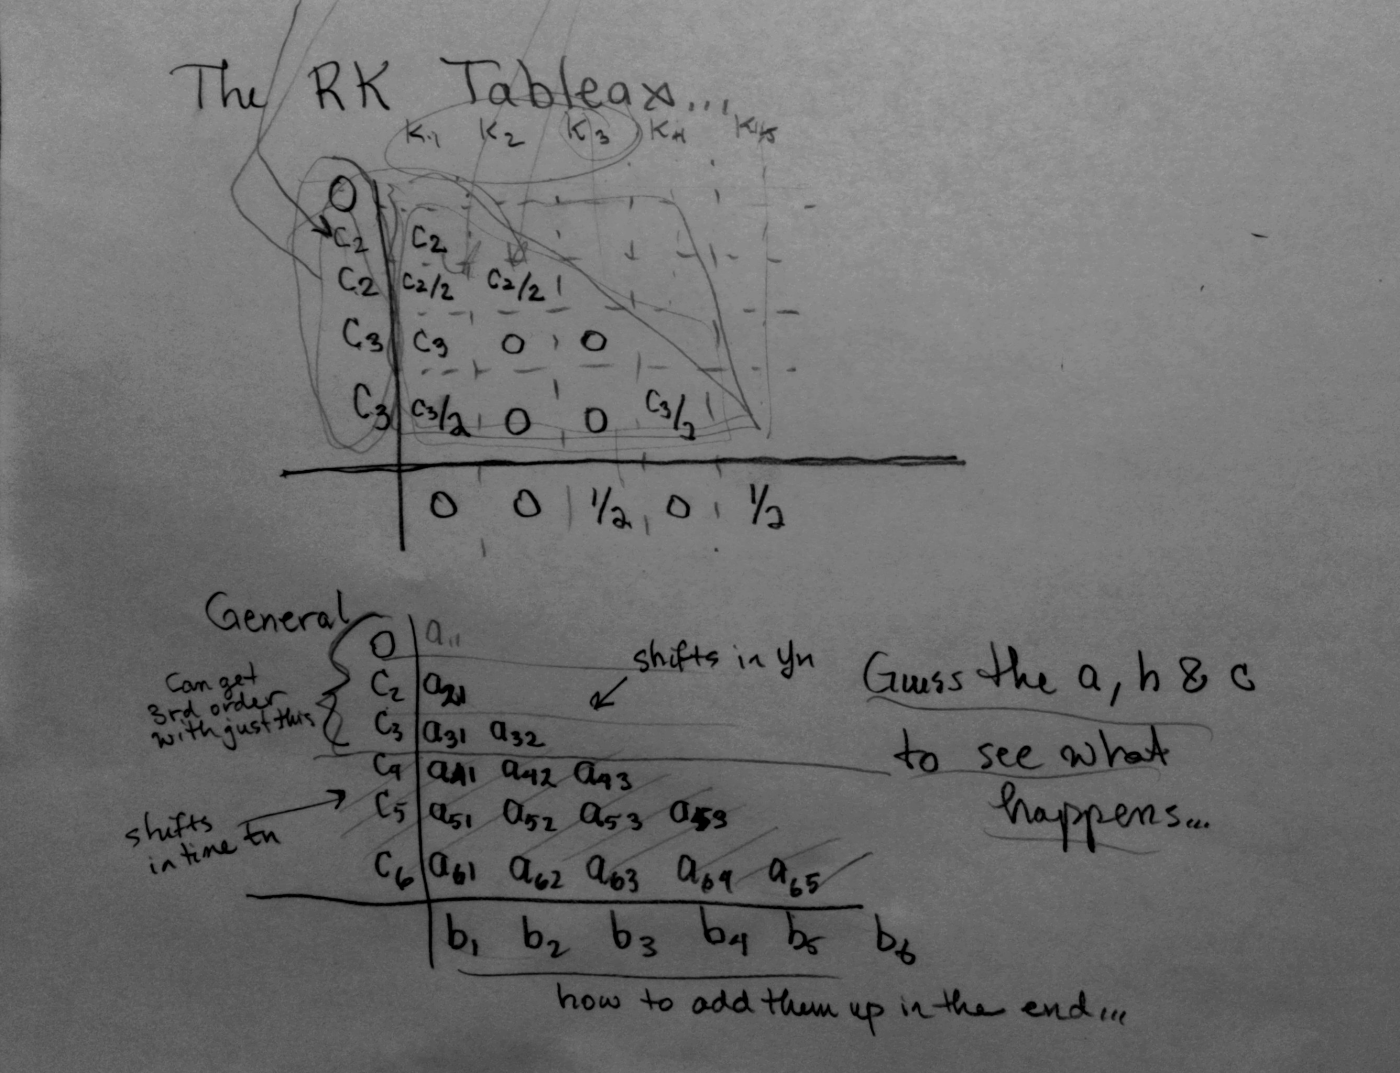 The RK Tableax...
K1 K2 K3 K4 K5
0
C2 C2
C2 C2/2 C2/2
C3 C3 0 0
C3 C3/2 0 0 C3/2
0 0 1/2 0 1/2
General
0 a11
C2 a21
C3 a31 a32
C4 a41 a42 a43
C5 a51 a52 a53 a53
C6 a61 a62 a63 a64 a65
b1 b2 b3 b4 b5 b6
Can get
3rd order
with just this
shifts
in time tn
shifts in yn
how to add them up in the end...
Guess the a, b & c
to see what
happens...